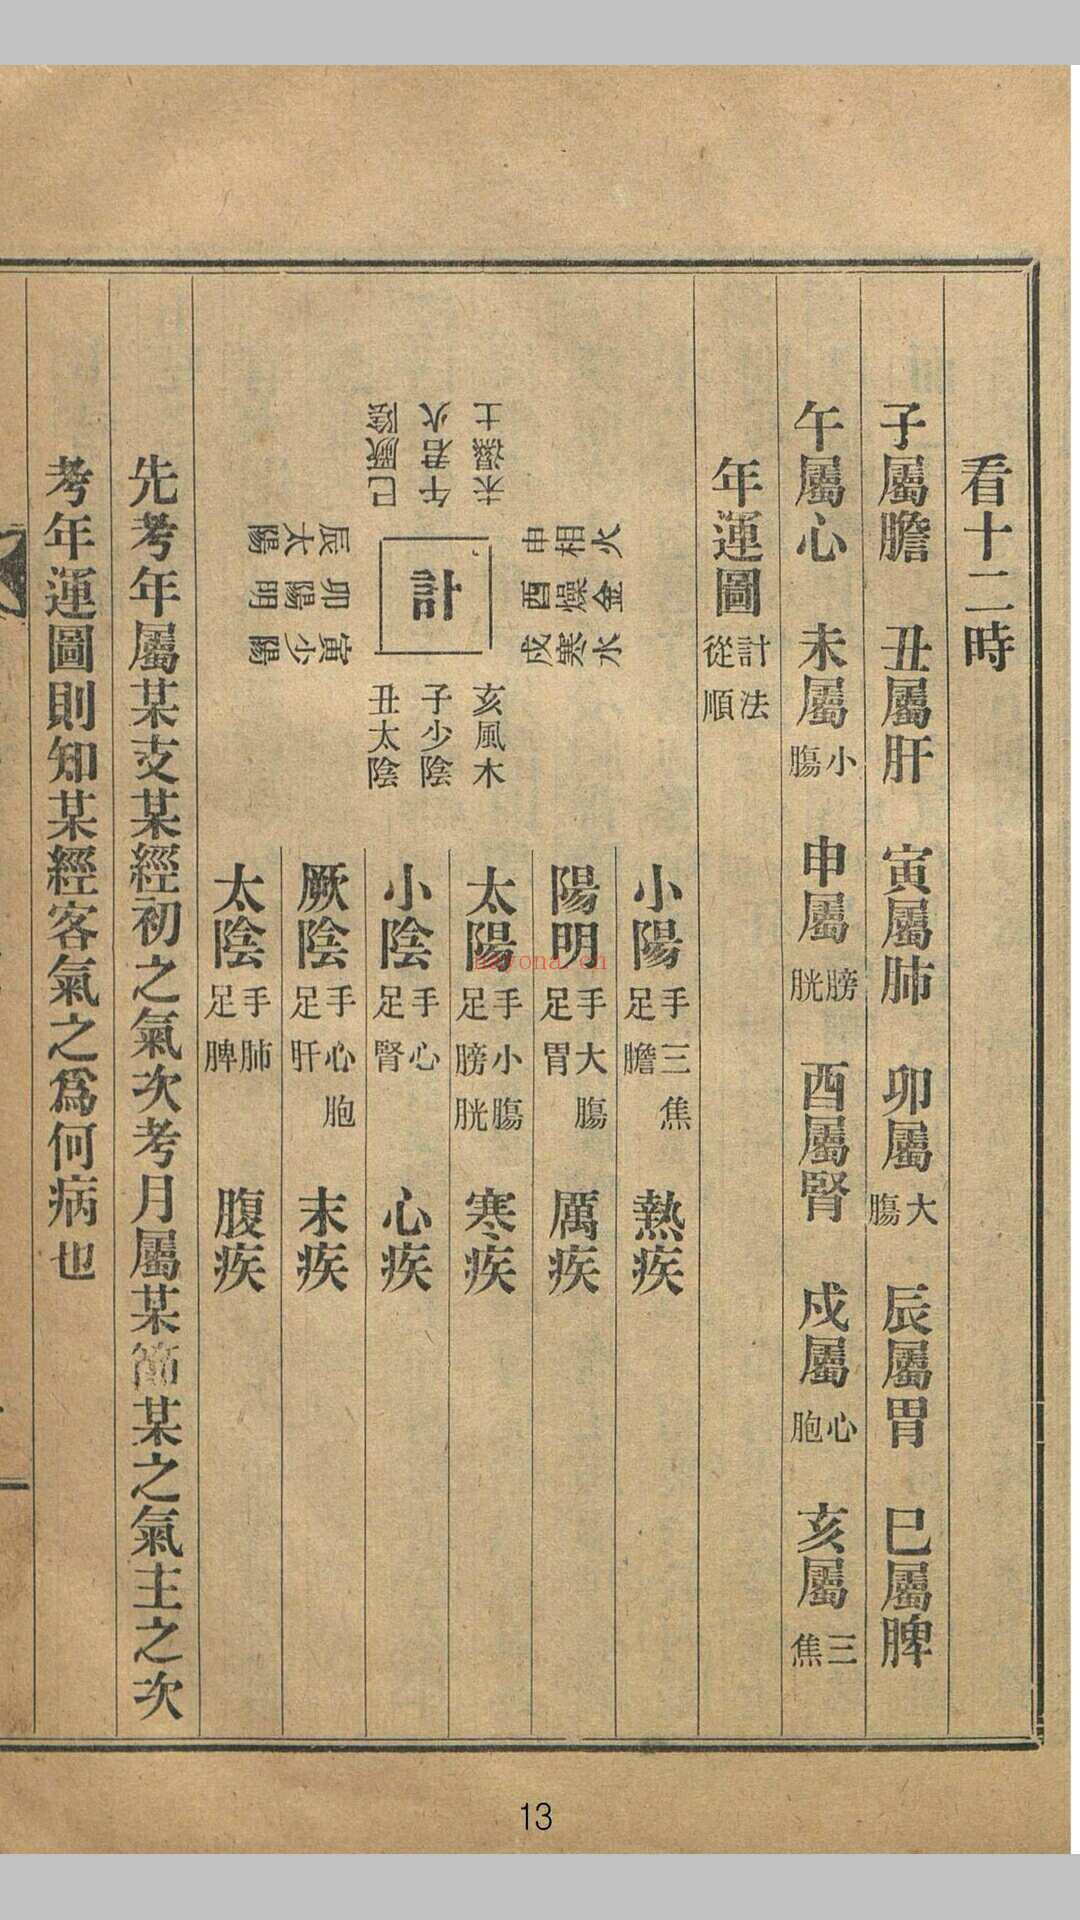 看十二時
子屬膽　丑屬肝　寅屬肺　卯屬大腸　辰屬胃　巳屬脾
午屬心　未屬小腸　申屬膀胱　酉屬腎　戌屬心胞　亥屬三焦
年運圖計法從順
未濕土
午君火
巳厥陰
申相火
酉燥金
戌寒水
計
辰太陽
卯陽明
寅少陽
亥風木
子少陰
丑太陰
小陽手三焦足膽　熱疾
陽明手大腸足胃　厲疾
太陽手小腸足膀胱　寒疾
小陰手心足腎　心疾
厥陰手心胞足肝　末疾
太陰手肺足脾　腹疾
先考年屬某支某經初之氣次考月屬某節某之氣主之次
考年運圖則知某經客氣之為何病也
nayona.cn
13